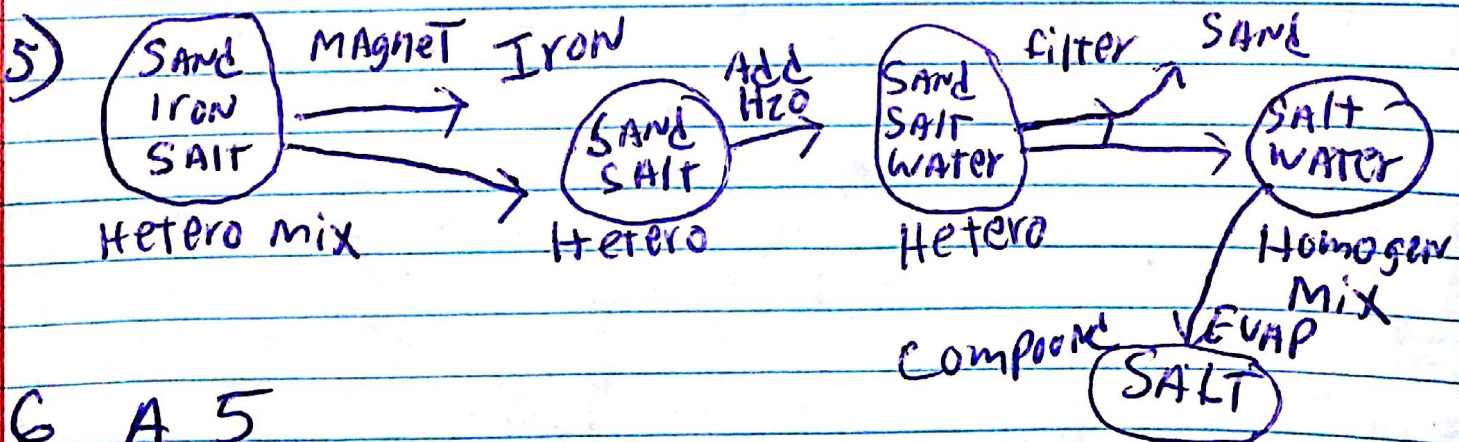 5)
SANd
IroN
SAlT
Hetero mix
MAgneT
IroN
SANd
SAlT
Hetero
Add
H2O
SANd
SAlT
WATer
Hetero
filter
SANd
SAlt
WATer
Homogen
Mix
EVAP
Compound
SALT
6 A 5